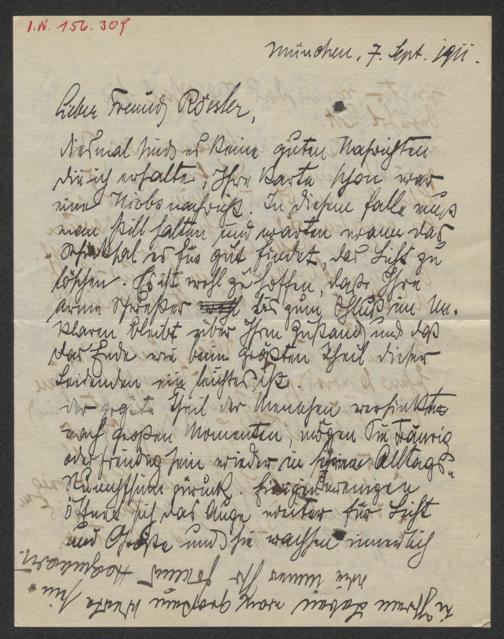 I.N. 156.309
München, 7. Sept. 1911.
Lieber Freund Rössler,
diesmal sind es keine guten Nachrichten
die ich erhalte, Ihre Karte schon war
eine Hiobsnachricht. In diesem Falle muß
man still halten und warten wann das
Schicksal es für gut findet, das Licht zu
löschen. Es ist wohl zu hoffen, daß Ihre
arme Schwester bis zum Schluß im Un-
klaren bleibt über Ihren Zustand und daß
das Ende wie beim größten Theil dieser
Leidenden ein leichtes ist.
der größte Theil der Menschen versinkt
nach großen Momenten, mögen Sie traurig
oder freudig sein wieder in Alltags-
zurück. Einigen wenigen
öffnet sich das Auge weiter für Licht
und Größe und sie wachsen innerlich
in Ihrem Leben von großem Werte sein
wie immer Ihr